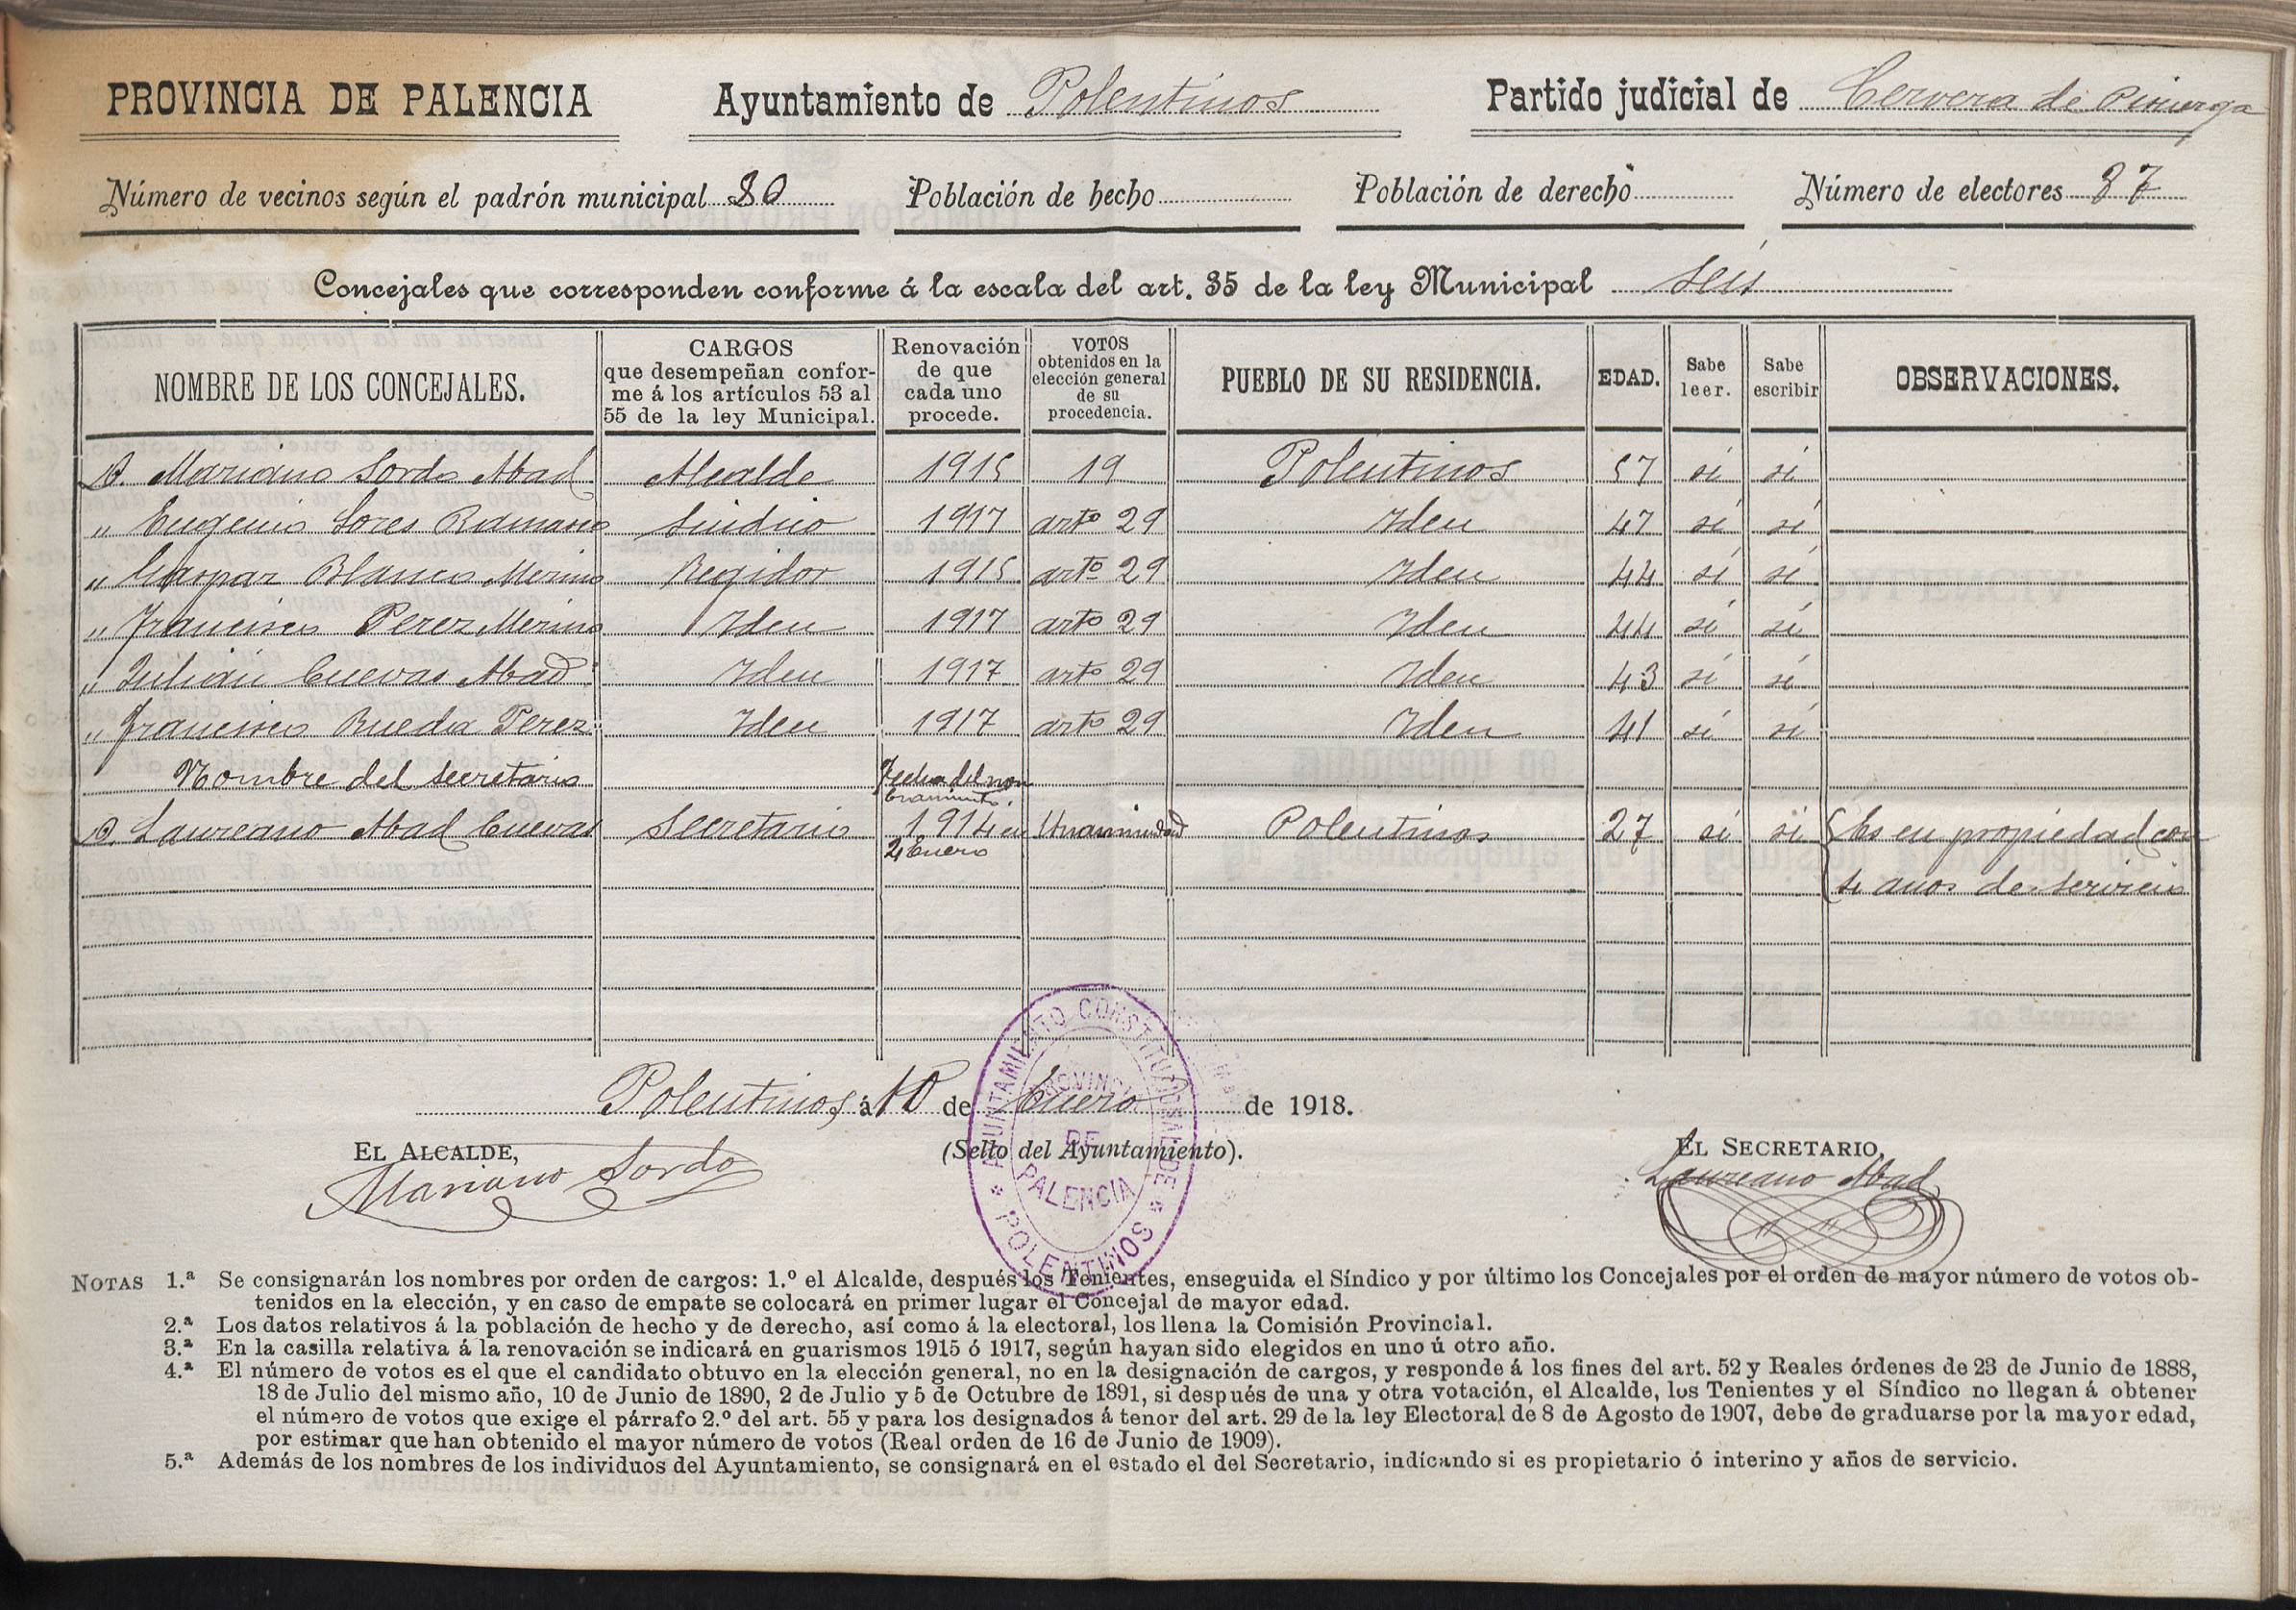 PROVINCIA DE PALENCIA Ayuntamiento de Polentinos Partido judicial de Cervera de Pisuerga
Número de vecinos según el padrón municipal 80 Población de hecho Población de derecho Número de electores 87
Concejales que corresponden conforme á la escala del art. 35 de la ley Municipal seis
NOMBRE DE LOS CONCEJALES. CARGOS que desempeñan confor-me á los artículos 53 al 55 de la ley Municipal. Renovación de que cada uno procede. VOTOS obtenidos en la elección general de su procedencia. PUEBLO DE SU RESIDENCIA. EDAD. Sabe leer. Sabe escribir OBSERVACIONES.
D. Mariano Sordo Abad Alcalde 1915 19 Polentinos 57 si si
" Eugenio Sores Síndico 1917 artº 29 Iden 47 si si
" Gaspar Blanco Merino Regidor 1915 artº 29 Iden 44 si si
" Francisco Perez Merino Iden 1917 artº 29 Iden 44 si si
" Julián Cuevas Abad Iden 1917 artº 29 Iden 43 si si
" Francisco Rueda Perez Iden 1917 artº 29 Iden 41 si si
Nombre del secretario Fecha del nom
bramiento.
D. Laureano Abad Cuevas Secretario 1914 en Unanimidad Polentinos 27 si si Es en propiedad con
4 Enero
4 anos de servicio
Polentinos á 10 de Enero de 1918.
EL ALCALDE, (Sello del Ayuntamiento). EL SECRETARIO,
Mariano Sordo Laureano Abad
AYUNTAMIENTO CONSTITUCIONAL DE * POLENTINOS *
PROVINCIA DE PALENCIA
NOTAS 1.ª Se consignarán los nombres por orden de cargos: 1.º el Alcalde, después los Tenientes, enseguida el Síndico y por último los Concejales por el orden de mayor número de votos ob-
tenidos en la elección, y en caso de empate se colocará en primer lugar el Concejal de mayor edad.
2.ª Los datos relativos á la población de hecho y de derecho, así como á la electoral, los llena la Comisión Provincial.
3.ª En la casilla relativa á la renovación se indicará en guarismos 1915 ó 1917, según hayan sido elegidos en uno ú otro año.
4.ª El número de votos es el que el candidato obtuvo en la elección general, no en la designación de cargos, y responde á los fines del art. 52 y Reales órdenes de 23 de Junio de 1888,
18 de Julio del mismo año, 10 de Junio de 1890, 2 de Julio y 5 de Octubre de 1891, si después de una y otra votación, el Alcalde, los Tenientes y el Síndico no llegan á obtener
el número de votos que exige el párrafo 2.º del art. 55 y para los designados á tenor del art. 29 de la ley Electoral de 8 de Agosto de 1907, debe de graduarse por la mayor edad,
por estimar que han obtenido el mayor número de votos (Real orden de 16 de Junio de 1909).
5.ª Además de los nombres de los individuos del Ayuntamiento, se consignará en el estado el del Secretario, indicando si es propietario ó interino y años de servicio.